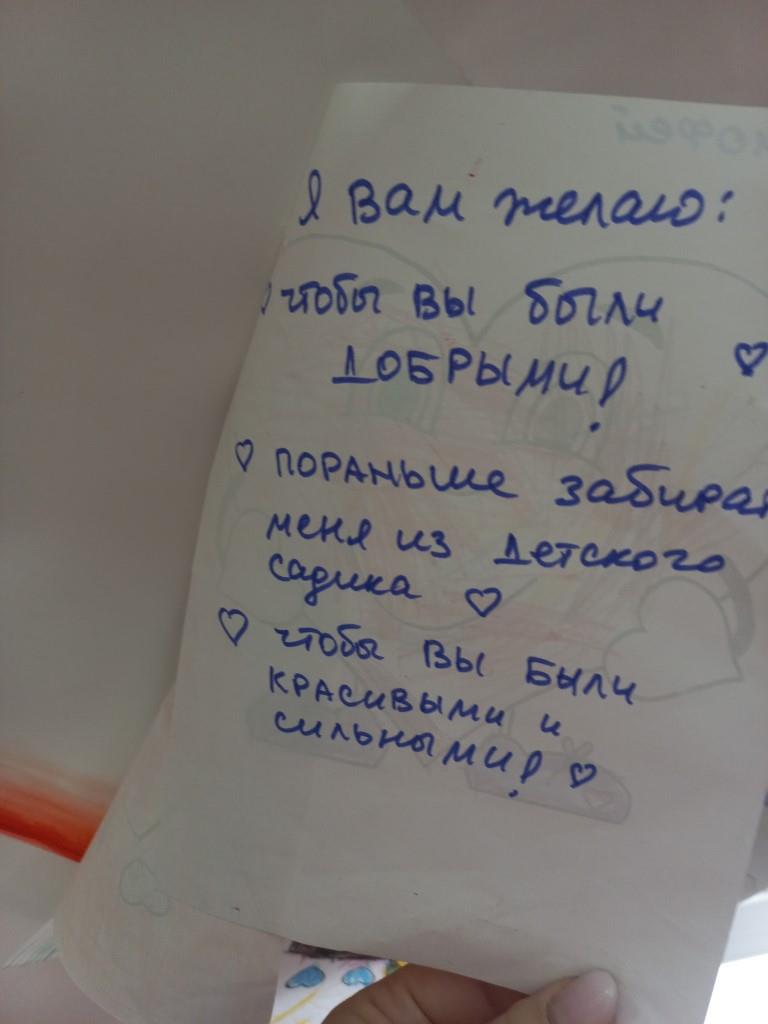 Я вам желаю:
♡ чтобы вы были
ДОБРЫМИ! ♡
♡ ПОРАНЬШЕ забират
меня из детского
садика ♡
♡ чтобы вы были
красивыми и
сильными! ♡